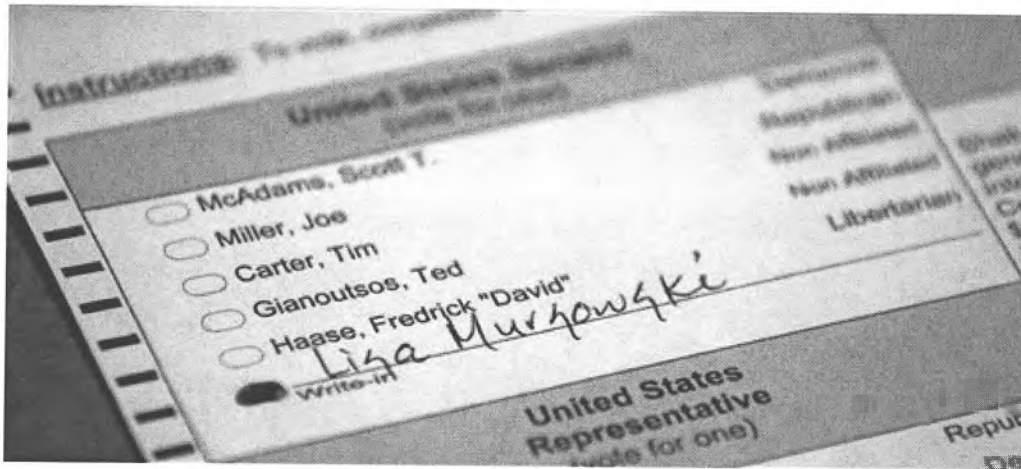 Instructions: To vote,
United States Senator
(vote for one)
McAdams, Scott T. Democrat
Miller, Joe Republican
Carter, Tim Non Affiliated
Gianoutsos, Ted Non Affiliated
Haase, Fredrick "David" Libertarian
Lisa Murkowski
Write-in
United States
Representative
(vote for one)
Repub